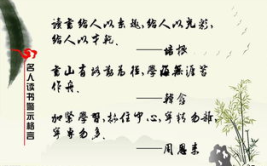 名人读书警示格言
读书给人以乐趣,给人以光彩,
给人以才干。
——培根
书山有路勤为径,学海无涯苦
作舟。
——韩愈
加紧学习,抓住中心,宁精勿杂,
宁专勿多。
——周恩来